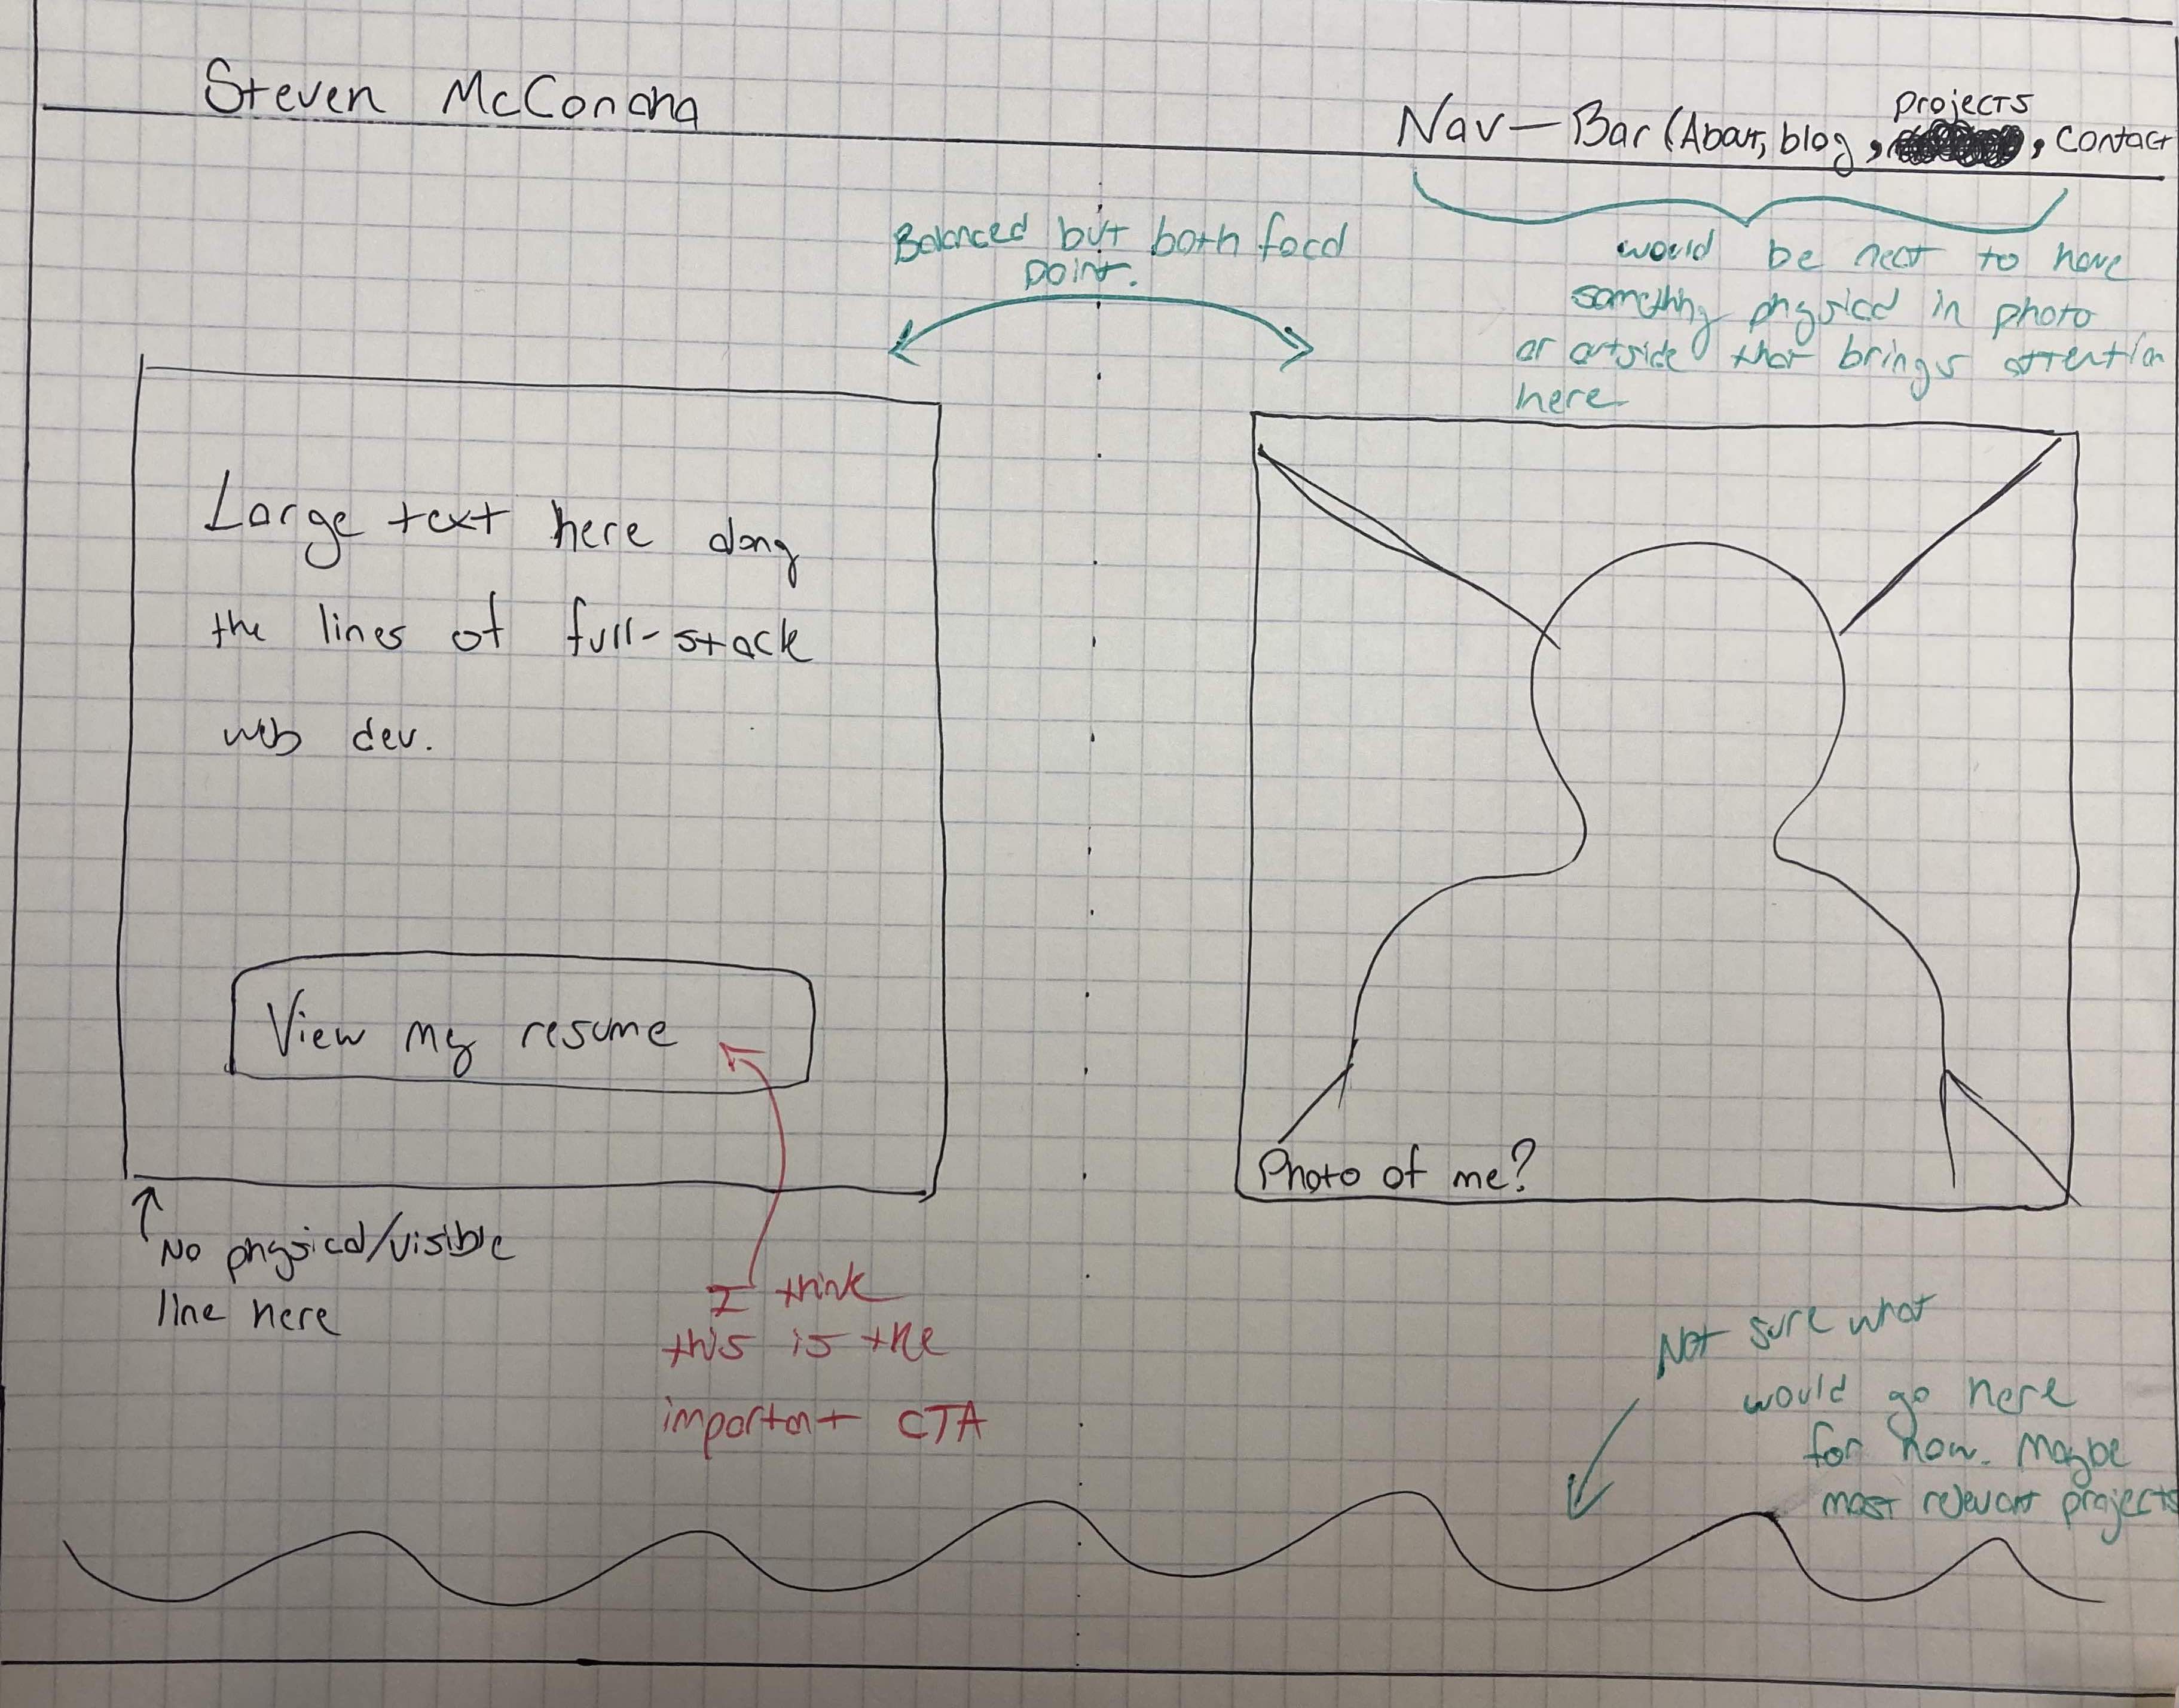 Steven McConcha
projects
Nav-Bar (About, blog, , contact
Balanced but both focal
point.
would be neat to have
something physical in photo
or outside that brings attention
here
Large text here along
the lines of full-stack
web dev.
View my resume
Photo of me?
No physical/visible
line here
I think
this is the
important CTA
Not sure what
would go here
for now. Maybe
most relevant projects